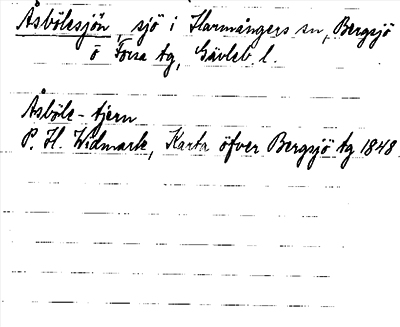 Åsbölesjön, sjö i Harmångers sn, Bergsjö
o Forsa tg, Gävleb. l.
Åsböle-tjern
P. H. Widmark, Karta öfver Bergsjö tg 1848